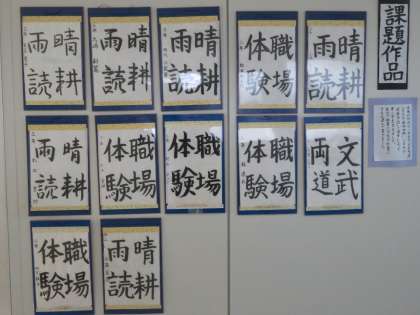 課題作品
晴耕
雨読
職場
体験
晴耕
雨読
晴耕
雨読
晴耕
雨読
文武
両道
職場
体験
職場
体験
職場
体験
晴耕
雨読
晴耕
雨読
職場
体験